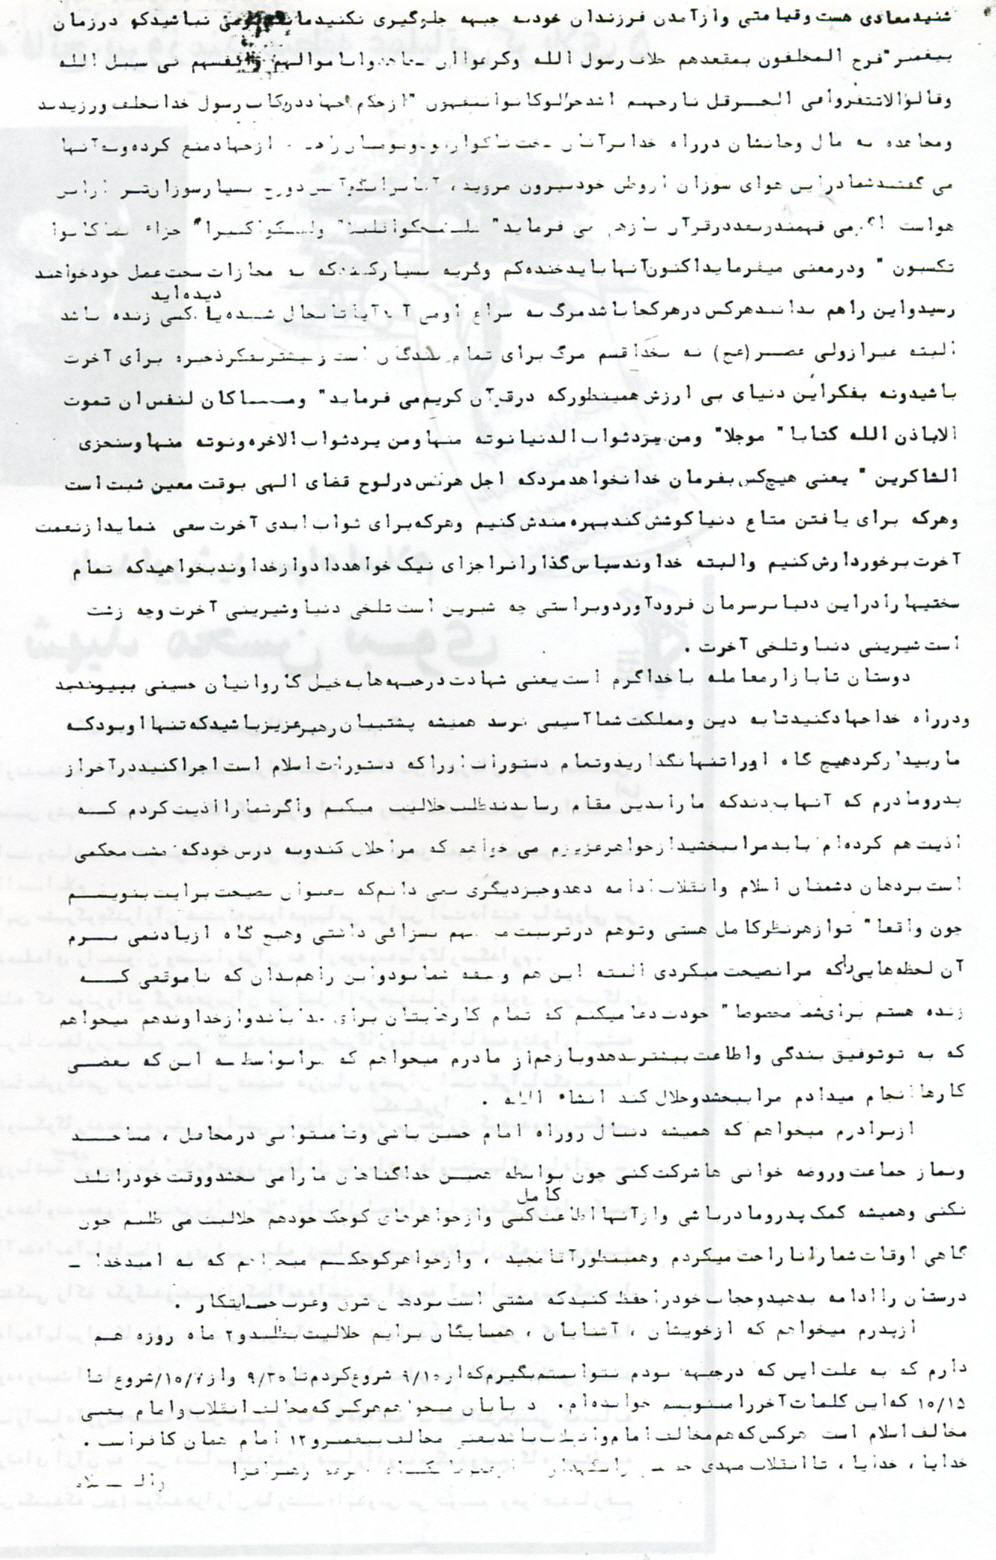 شنیدمعادی هست وقیامتی وازآمدن فرزندان خودبه جبهه جلوگیری نکنید نباشیدکه درزمان
پیغمبر "فرح المخلفون بمقعدهم خلاف رسول الله وکرهواان یجاهدواباموالهم وانفسهم فی سبیل الله
وقالوالاتنفروافی الحرقل نارجهنم اشدحرالوکانوایفقهون "ازحکم جهاددررکاب رسول خداتخلف ورزیدند
ومجاهده به مال وجانشان درراه خدابرآنان سخت ناگواربود ازجهادمنع کرده وبه آنها
می گفتندشمادراین هوای سوزان ازوطن خودبیرون مروید ، آتش دوزخ بسیارسوزان تر ازاین
هواست اگرمی فهمیدندبعددرقرآن بازهم می فرماید" فلیضحکواقلیلا" ولیبکواکثیرا" جزاء بماکانوا
تکسبون " ودرمعنی میفرمایداکنون آنهابایدخنده کم وگریه بسیارکنندکه به مجازات سخت عمل خودخواهند
رسیدواین راهم بدانیدهرکس درهرکجاباشدمرگ به سراغ اومی آید آیاتابحال شنیده یا دیده اید کسی زنده باشد
البته غیرازولی عصر(عج) نه بخداقسم مرگ برای تمام بندگان است بیشتربفکرذخیره برای آخرت
باشیدونه بفکراین دنیای بی ارزش همینطورکه درقرآن کریم می فرماید" ومـــاکان لنفس ان تموت
الاباذن الله کتابا" موجلا" ومن یردثواب الدنیانوته منهاومن یردثواب الاخره ونوته منهاوسنجزی
الشاکرین " یعنی هیچ کس بفرمان خدانخواهدمردکه اجل هرکس درلوح قضای الهی بوقت معین ثبت است
وهرکه برای یافتن متاع دنیاکوشش کندبهره مندش کنیم وهرکه برای ثواب ابدی آخرت سعی نمایدازنعمت
آخرت برخوردارش کنیم والبته خداوندسپاس گذارانراجزای نیک خواهددادوازخداوندبخواهیدکه تمام
سختیهارادراین دنیابرسرمان فرودآوردوبراستی چه شیرین است تلخی دنیاوشیرینی آخرت وچه زشت
است شیرینی دنیاوتلخی آخرت .
دوستان تابازارمعامله باخداگرم است یعنی شهادت درجبهه هابه خیل کاروانیان حسینی بپیوندید
ودرراه خداجهادکنیدتابه دین ومملکت شماآسیبی نرسد همیشه پشتیبان رهبرعزیزباشیدکه تنهااوبودکه
مارابیدارکردهیچ گاه اوراتنهانگذاریدوتمام دستورات اوراکه دستورات اسلام است اجراکنیددرآخراز
پدرومادرم که آنهابودندکه مارابدین مقام رسانیدندطلب حلالیت میکنم واگرشمارااذیت کردم کـــه
اذیت هم کرده ام بایدمراببخشیدازخواهرعزیزم می خواهم که مراحلال کندوبه درس خودکه مشت محکمی
است بردهان دشمنان اسلام وانقلاب ادامه دهدوچیزدیگری نمی دانم که بعنوان نصیحت برایت بنویســم
چون واقعا" توازهرنظرکامل هستی وتوهم درتربیت من سهم بسزائی داشتی وهیچ گاه ازیادنمی بـرم
آن لحظه هایی راکه مرانصیحت میکردی البته این هم وظیفه شمابودواین راهم بدان که تاموقعی کــه
زنده هستم برای شما مخصوصا" خودت دعامیکنم که تمام کارهایتان برای خدا باشدوازخداوندهم میخواهم
که به توتوفیق بندگی واطاعت بیشتربدهدوبازهم ازمادرم میخواهم که مرابواسطه این که بعضــی
کارهاانجام میدادم مراببخشدوحلال کند انشاء الله .
ازبرادرم میخواهم که همیشه دنبال روراه امام حسین باشی وتامیتوانی درمحافل ، مساجــد
ونماز جماعت وروضه خوانی هاشرکت کنی چون بواسطه همین خداگناهان مارامی بخشدووقت خودراتلف
نکنی وهمیشه کمک پدرومادرباشی وازآنهااطاعت کامل کنی وازخواهرهای کوچک خودهم حلالیت می طلبم چون
گاهی اوقات شماراناراحت میکردم وهمینطورآقامجید ، وازخواهرکوچکم میخواهم که به امیدخدا ـ
درستان راادامه بدهیدوحجاب خودراحفظ کنیدکه مشتی است بردهان شرق وغرب جنایتکار .
ازپدرم میخواهم که ازخویشان ، آشنایان ، همسایگان برایم حلالیت بطلبدو۲ ماه روزه هـم
دارم که به علت این که درجبهه بودم نتوانستم بگیرم که از ۹/۱۰ شروع کردم تا ۹/۳۰ واز ۱۰/۷/شروع تا
۱۰/۱۵ که این کلمات آخررامینویسم خوانده ام . درپایان میخواهم هرکس که مخالف انقلاب وامام یعنی
مخالف اسلام است هرکس که هم مخالف امام وانقلاب باشدیعنی مخالف پیغمبرو۱۲ امام همان کافراست .
خدایا ، خدایا ، تاانقلاب مهدی خمینی رانگهدار والســلام